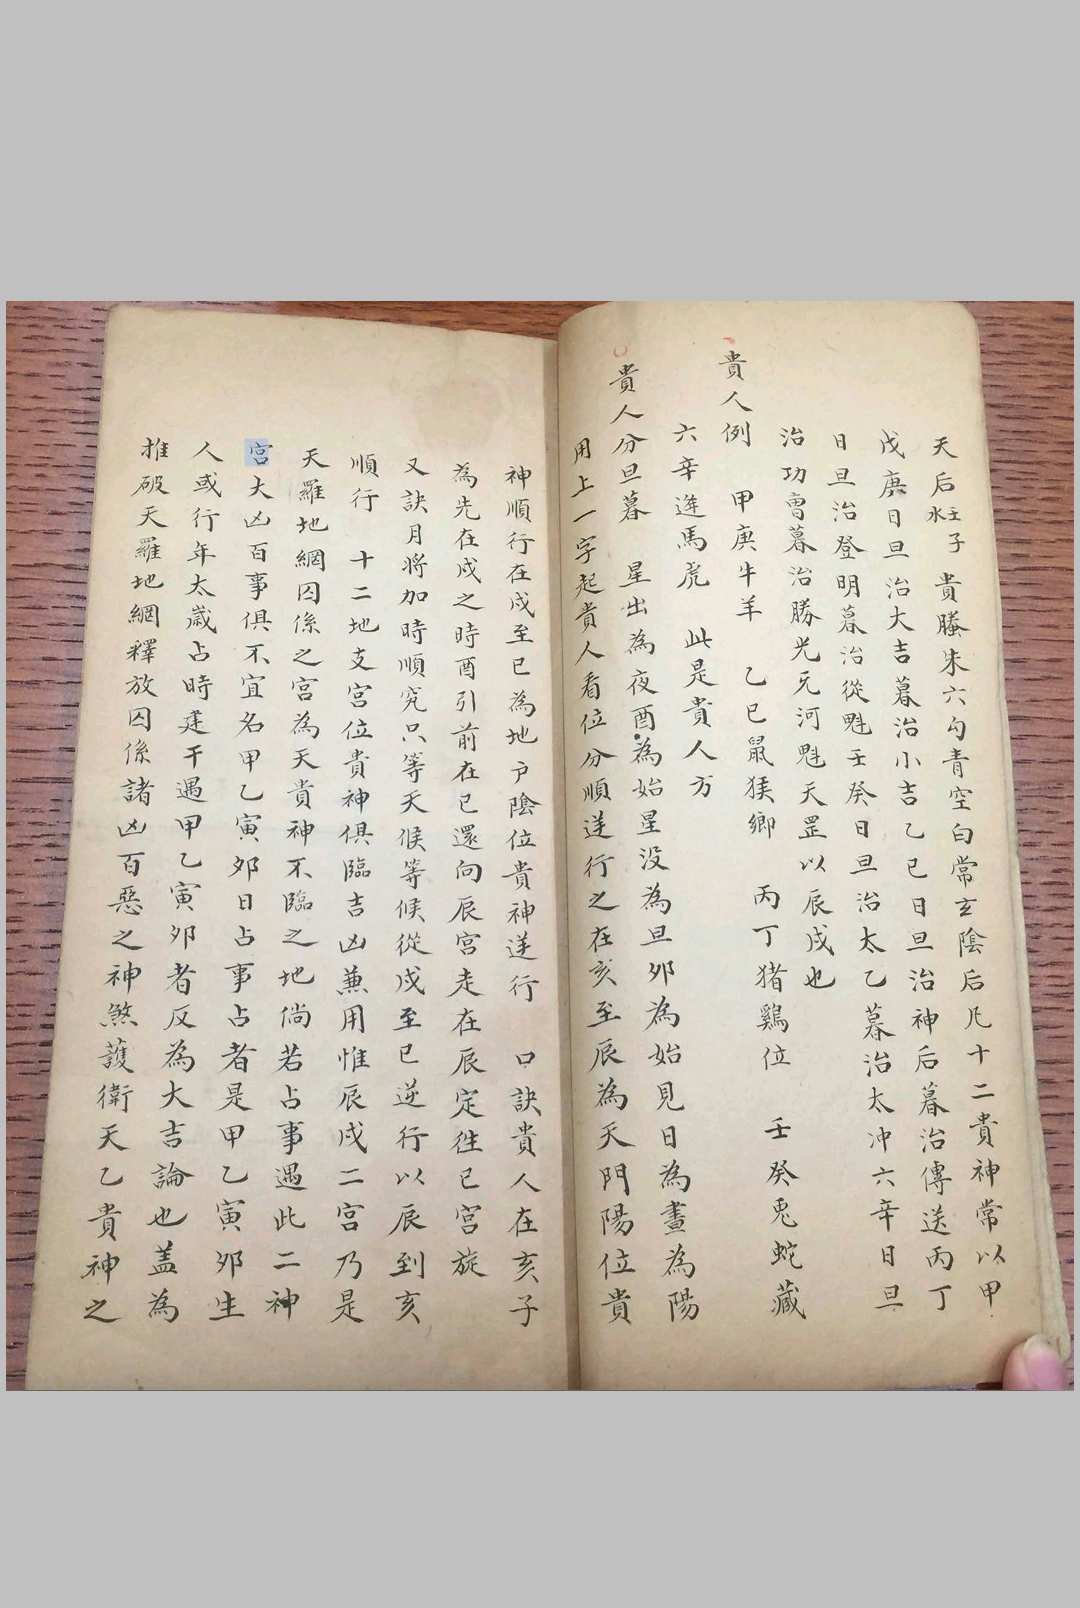 天后水主子 貴螣朱六勾青空白常玄陰后凡十二貴神常以甲
戊庚日旦治大吉暮治小吉乙巳日旦治神后暮治傳送丙丁
日旦治登明暮治從魁壬癸日旦治太乙暮治太冲六辛日旦
治功曹暮治勝光元河魁天罡以辰戌也
貴人例 甲庚牛羊 乙巳鼠猴鄉 丙丁猪鷄位 壬癸兎蛇藏
六辛逢馬虎 此是貴人方
貴人分旦暮 星出為夜酉為始星没為旦夘為始見日為晝為陽
用上一字起貴人看位分順逆行之在亥至辰為天門陽位貴
神順行在戌至巳為地户陰位貴神逆行 口訣貴人在亥子
為先在戌之時酉引前在巳還向辰宮走在辰定徃巳宮旋
又訣月將加時順究只等天候等候從戌至巳逆行以辰到亥
順行 十二地支宮位貴神俱臨吉凶兼用惟辰戌二宮乃是
天羅地網囚係之宮為天貴神不臨之地倘若占事遇此二神
宮大凶百事俱不宜名甲乙寅夘日占事占者是甲乙寅夘生
人或行年太歲占時建干遇甲乙寅夘者反為大吉論也盖為
推破天羅地網釋放囚係諸凶百惡之神煞護衛天乙貴神之